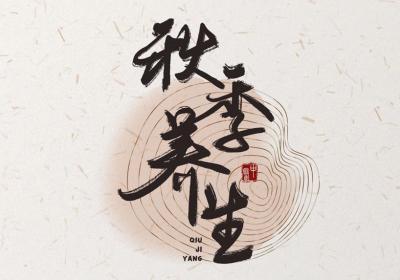 秋季
养生
QIU
JI
YANG